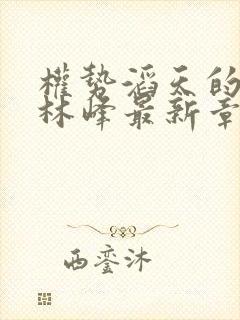 權勢滔天的
林峰最新章
西銮沐